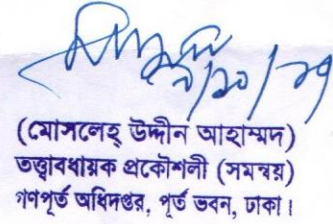 ৯/১০/১৭
(মোসলেহ্ উদ্দীন আহাম্মদ)
তত্ত্বাবধায়ক প্রকৌশলী (সমন্বয়)
গণপূর্ত অধিদপ্তর, পূর্ত ভবন, ঢাকা।